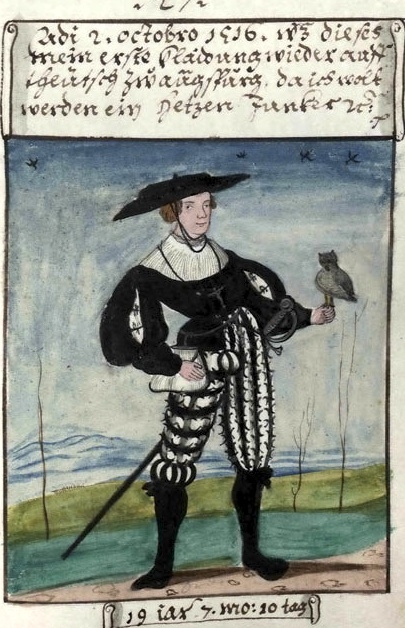 Adi 2. octobro 1516. wz dieses
mein erste klaidung wieder auff
theutsch zw augspurg. da ich wolt
werden ein Petzen Junkir
19 iar 7. mo: 10 tag